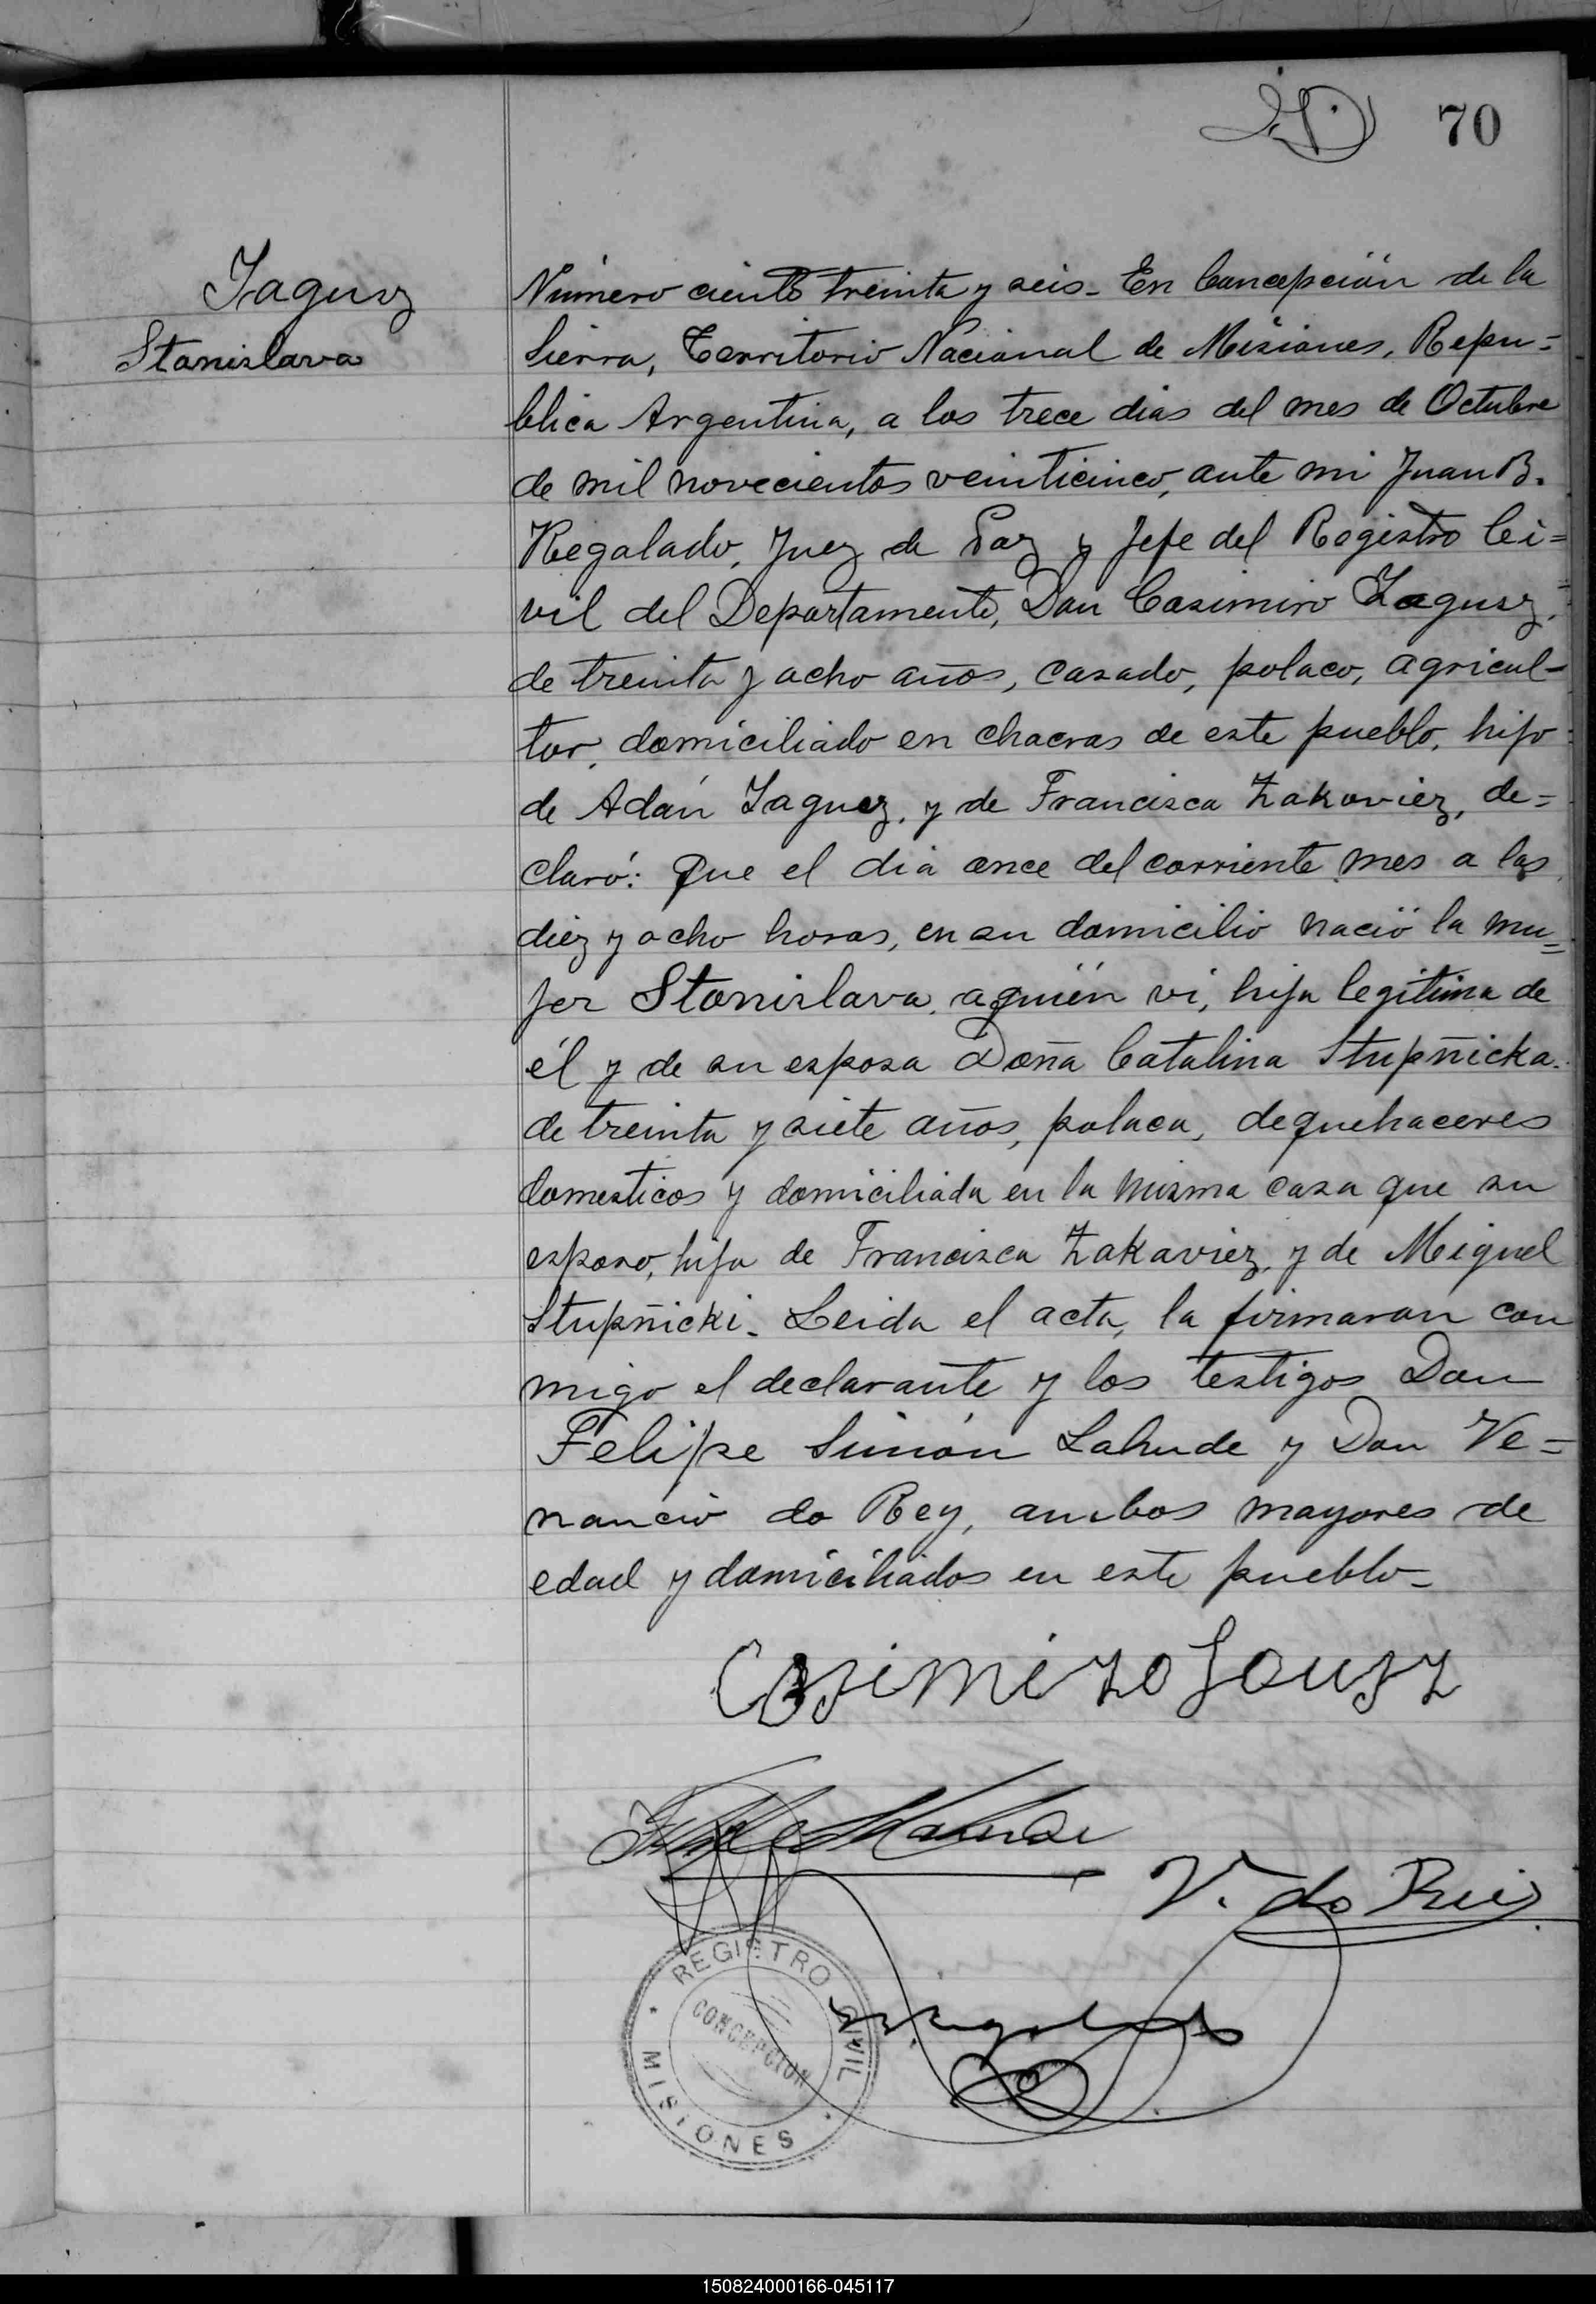 70
Jagusz
Stanislava
Número ciento treinta y seis - En Concepción de la
Sierra, Territorio Nacional de Misiones, Repu=
blica Argentina, a los trece dias del mes de Octubre
de mil novecientos veinticinco, ante mi Juan B.
Regalado, Juez de Paz y Jefe del Registro Ci=
vil del Departamento, Don Casimiro Jagusz,
de treinta y ocho años, casado, polaco, agricul-
tor, domiciliado en chacras de este pueblo, hijo
de Adán Jaguez, y de Francisca Zakoviez, de=
claró: Que el dia once del corriente mes a las
diez y ocho horas, en su domicilio nació la mu=
jer Stanislava, a quién vi, hija legitima de
él y de su esposa Doña Catalina Stupñicka.
de treinta y siete años, polaca, de quehaceres
domesticos y domiciliada en la misma casa que su
esposo, hija de Francisca Zakaviez, y de Miguel
Stupñicki - Leida el acta, la firmaron con
migo el declarante y los testigos Don
Felipe Simón Lahude y Don Ve=
nancio do Rey, ambos mayores de
edad y domiciliados en este pueblo -
Casimizo Jousz
V. do Rei
REGISTRO CIVIL
CONCEPCION
MISIONES
150824000166-045117